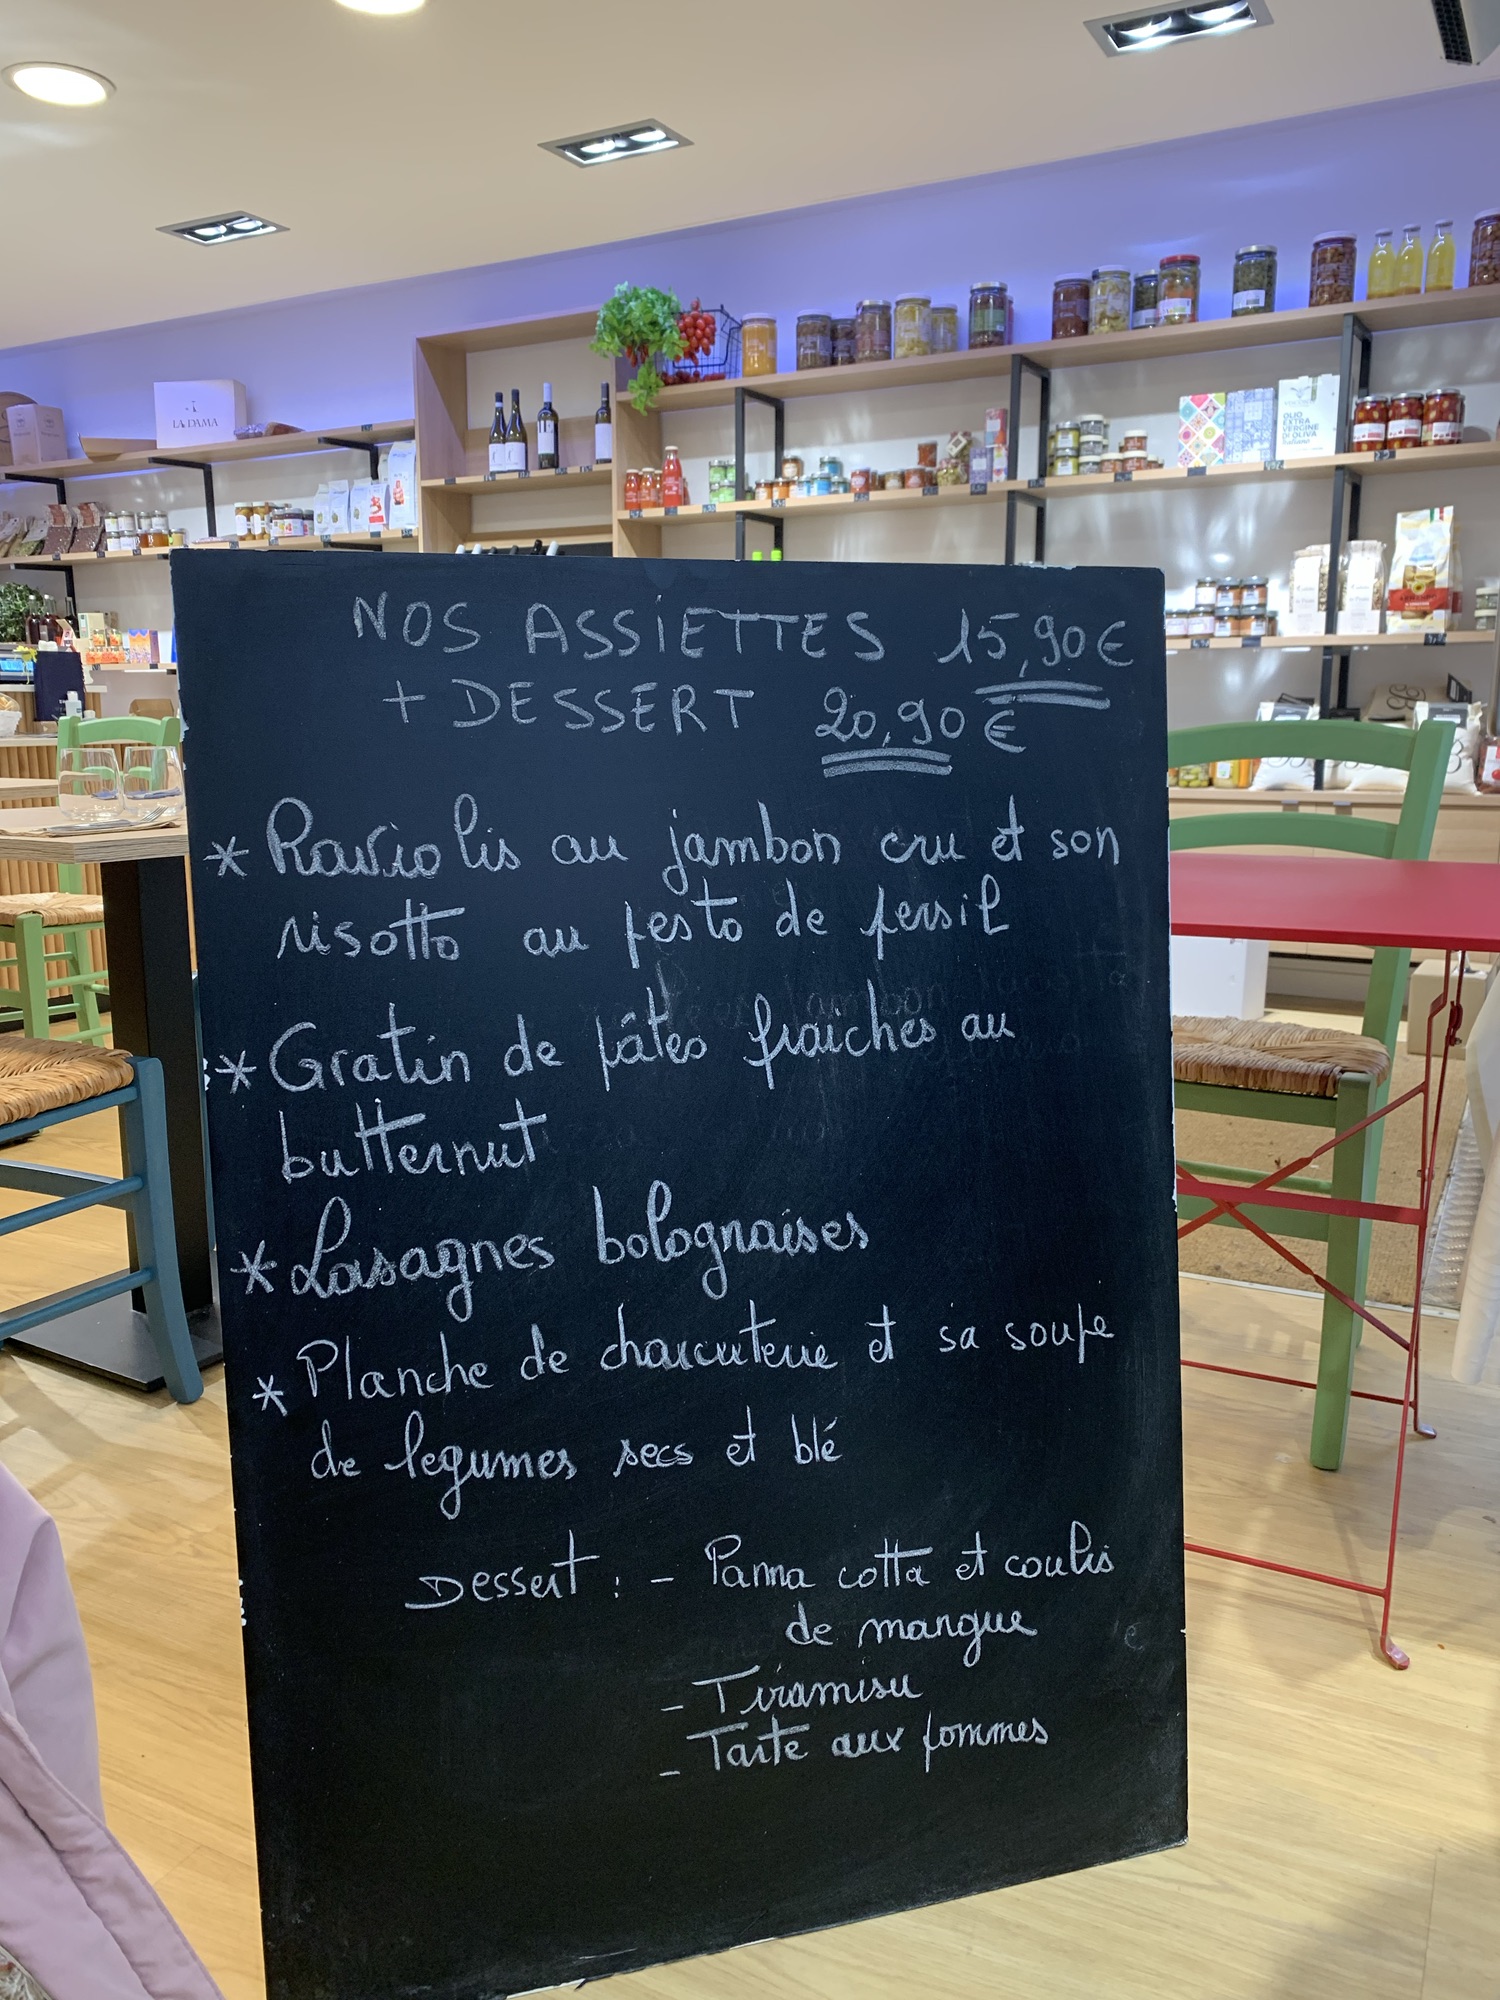 LA DAMA
OLIO
EXTRA
VERGINE
DI OLIVA
Italiano
NOS ASSIETTES 15,90€
+ DESSERT 20,90€
* Raviolis au jambon cru et son
risotto au pesto de persil
* Gratin de pâtes fraiches au
butternut
* Lasagnes bolognaises
* Planche de charcuterie et sa soupe
de legumes secs et blé
Dessert : - Panna cotta et coulis
de mangue
- Tiramisu
- Tarte aux pommes